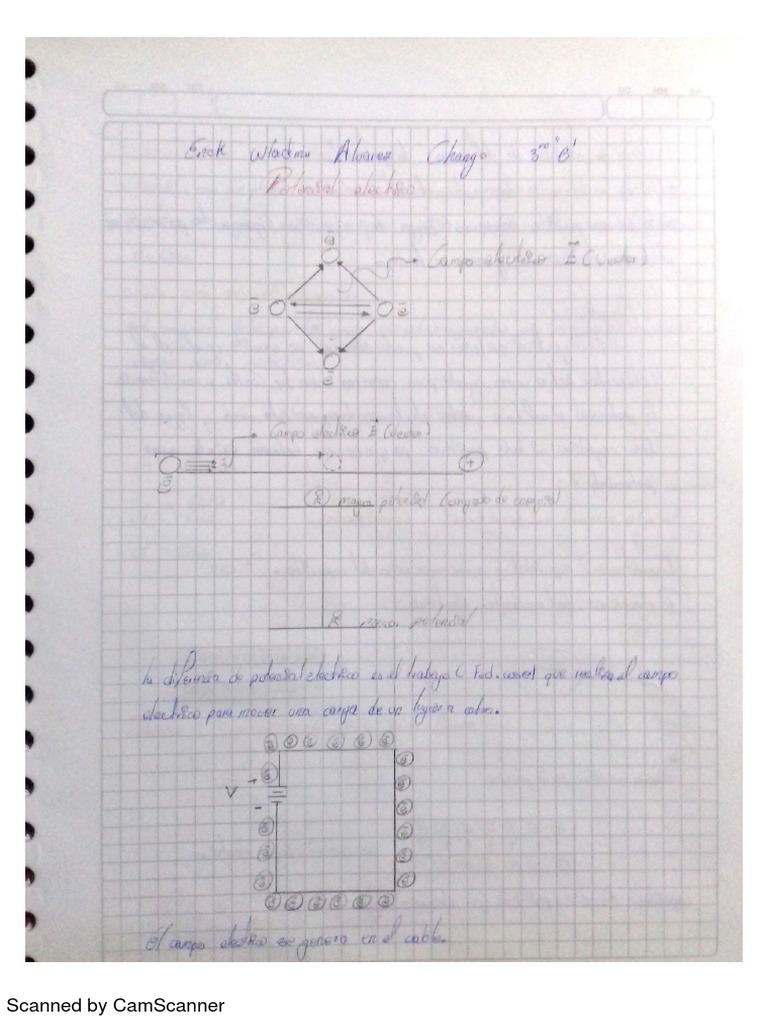 Erick Wladimir Alvarez Chango 3ro "B"
Potencial electrico
e
Campo electrico E (Vector)
e e
e
Campo electrico E (vector)
e +
mayor potencial (cargado de energia)
menor potencial
la diferencia de potencial electrico es el trabajo ( F.d.cosθ) que realiza el campo
electrico para mover una carga de un lugar a otro.
V + -
El campo electrico se genera en el cable.
Scanned by CamScanner